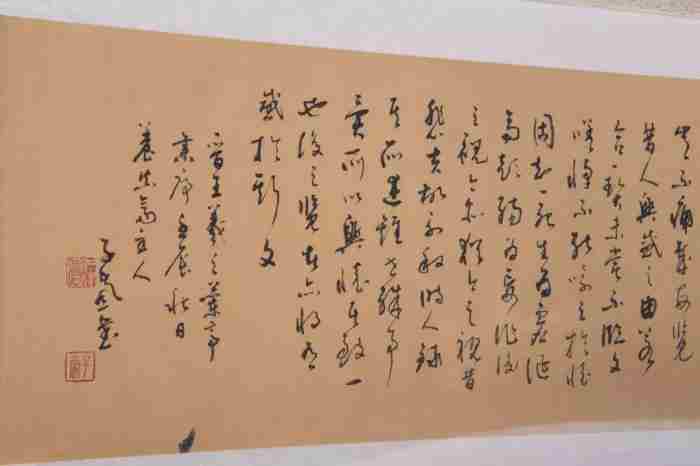 豈不痛哉每覽
昔人興感之由若
合一契未嘗不臨文
嗟悼不能喻之於懷
固知一死生為虛誕
齊彭殤為妄作後
之視今亦猶今之視昔
悲夫故列敘時人錄
其所述雖世殊事
異所以興懷其致一
也後之覽者亦將有
感於斯文
晉王羲之蘭亭
集序壬辰秋日
養真齋主人